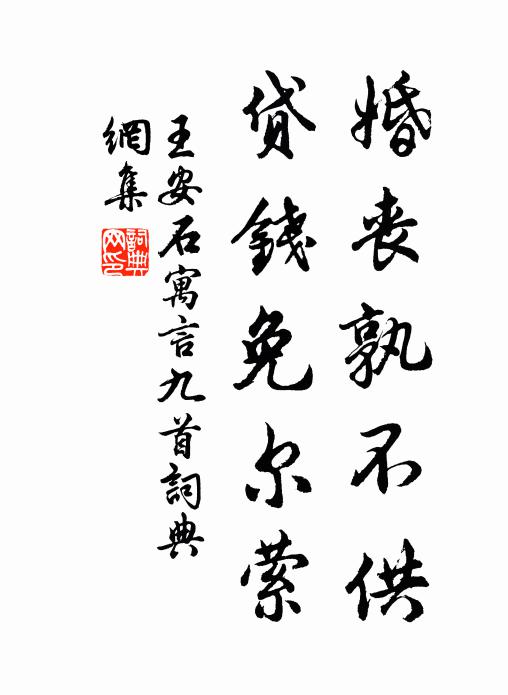 婚丧孰不供
贷錢免尔萦
王安石寓言九首詞典
網集
詞典网印